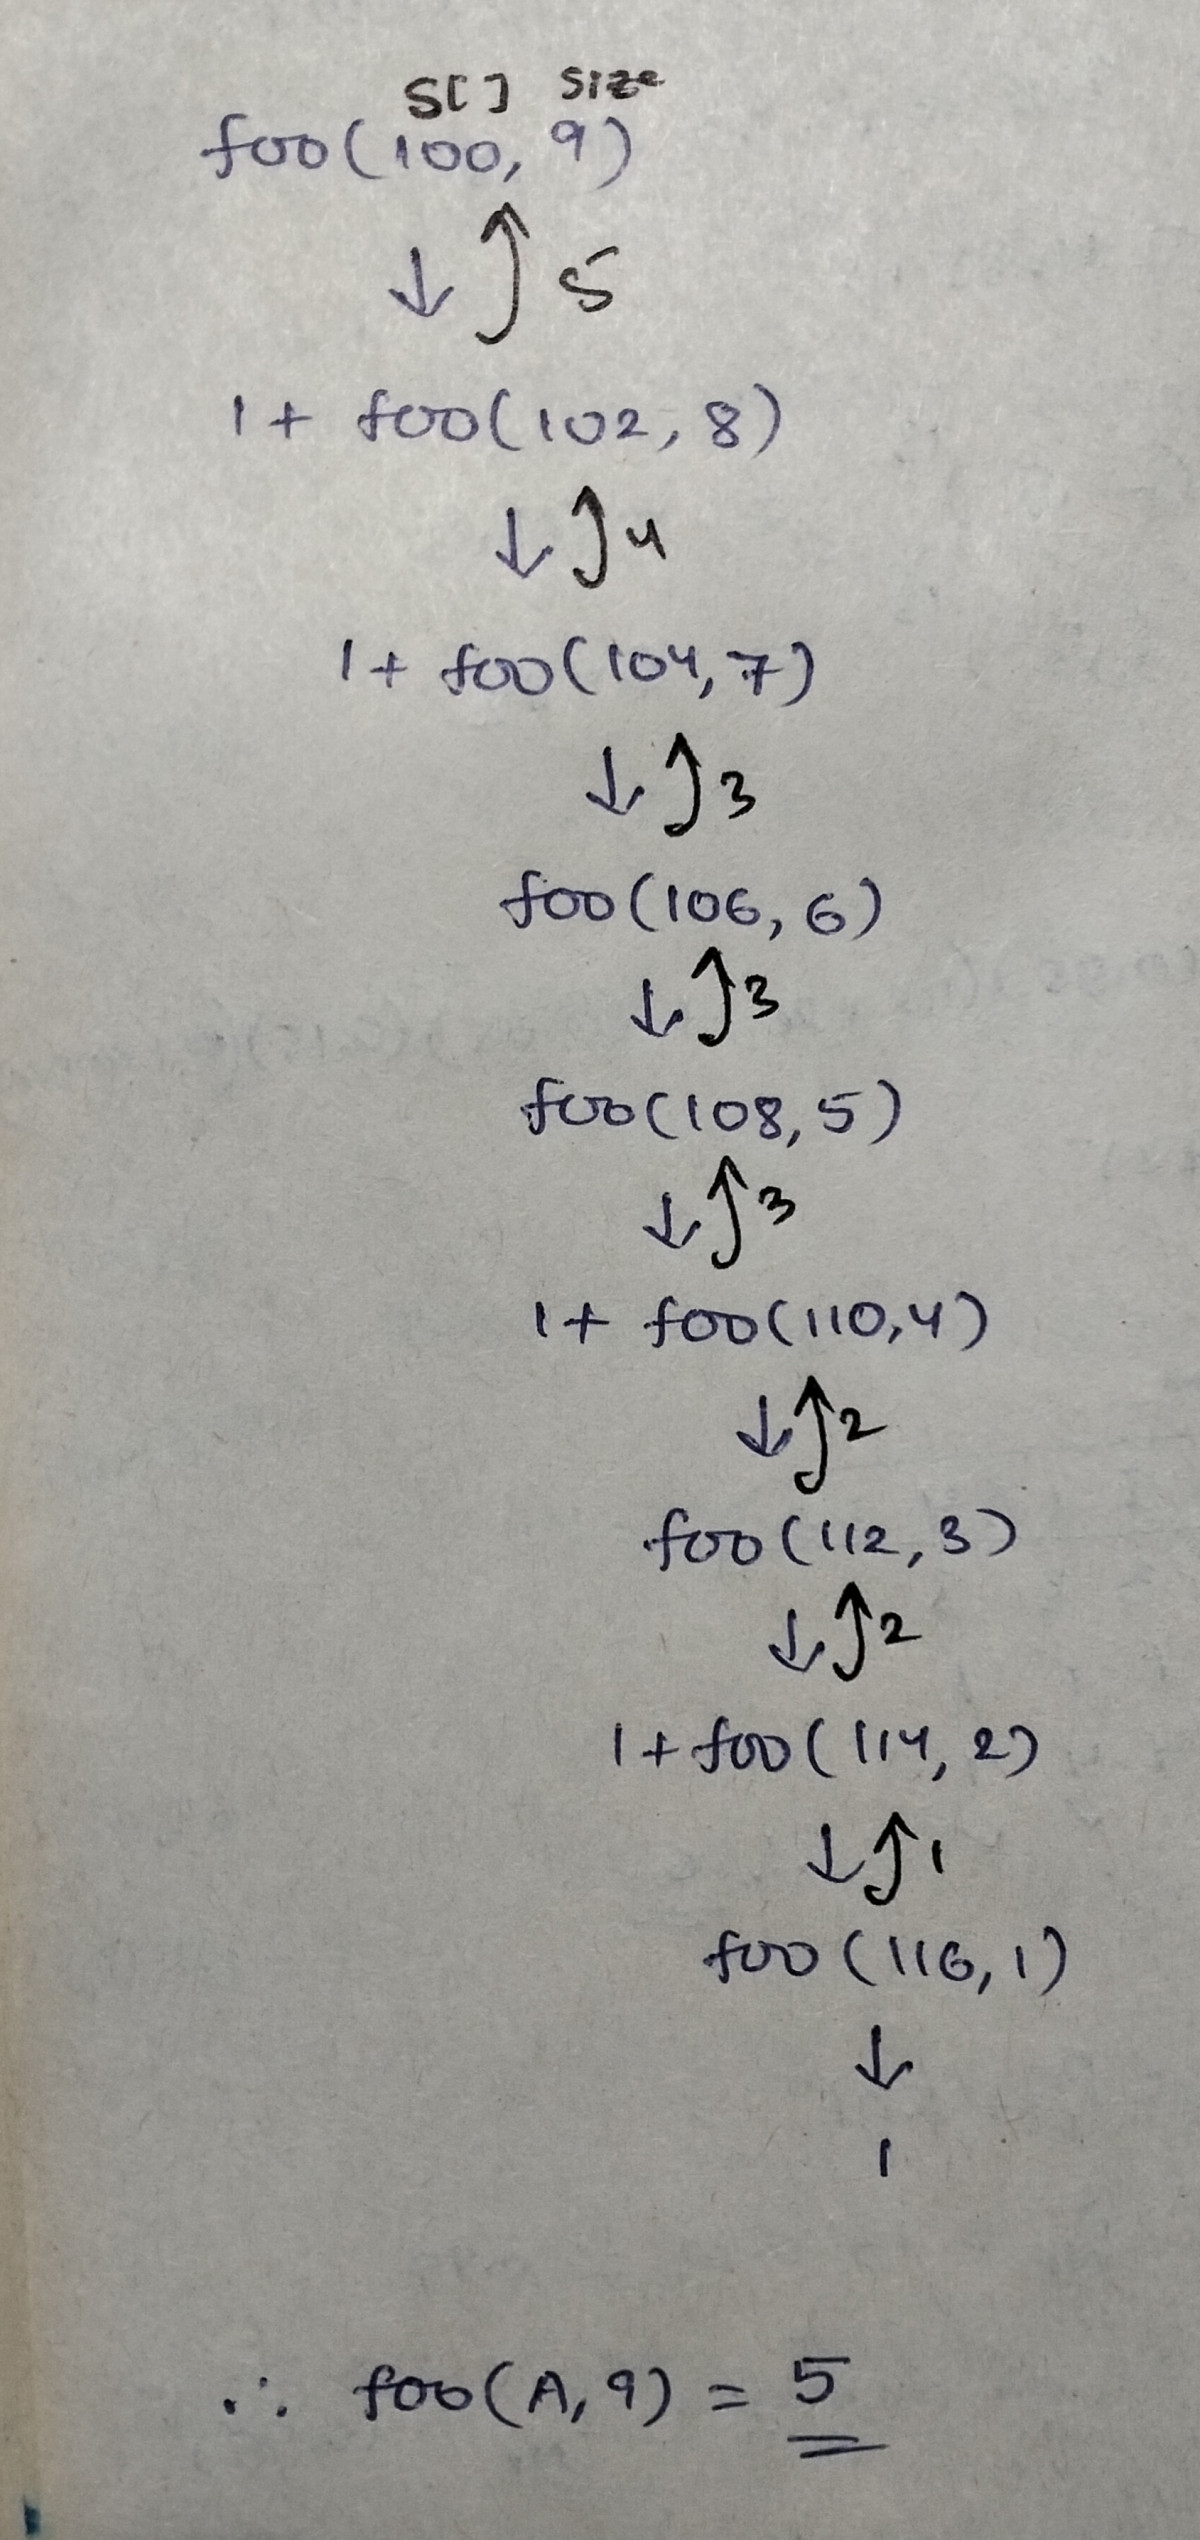 S[] size
foo(100, 9)
↓ ⤴ 5
1 + foo(102, 8)
↓ ⤴ 4
1 + foo(104, 7)
↓ ⤴ 3
foo(106, 6)
↓ ⤴ 3
foo(108, 5)
↓ ⤴ 3
1 + foo(110, 4)
↓ ⤴ 2
foo(112, 3)
↓ ⤴ 2
1 + foo(114, 2)
↓ ⤴ 1
foo(116, 1)
↓
1
∴ foo(A, 9) = 5